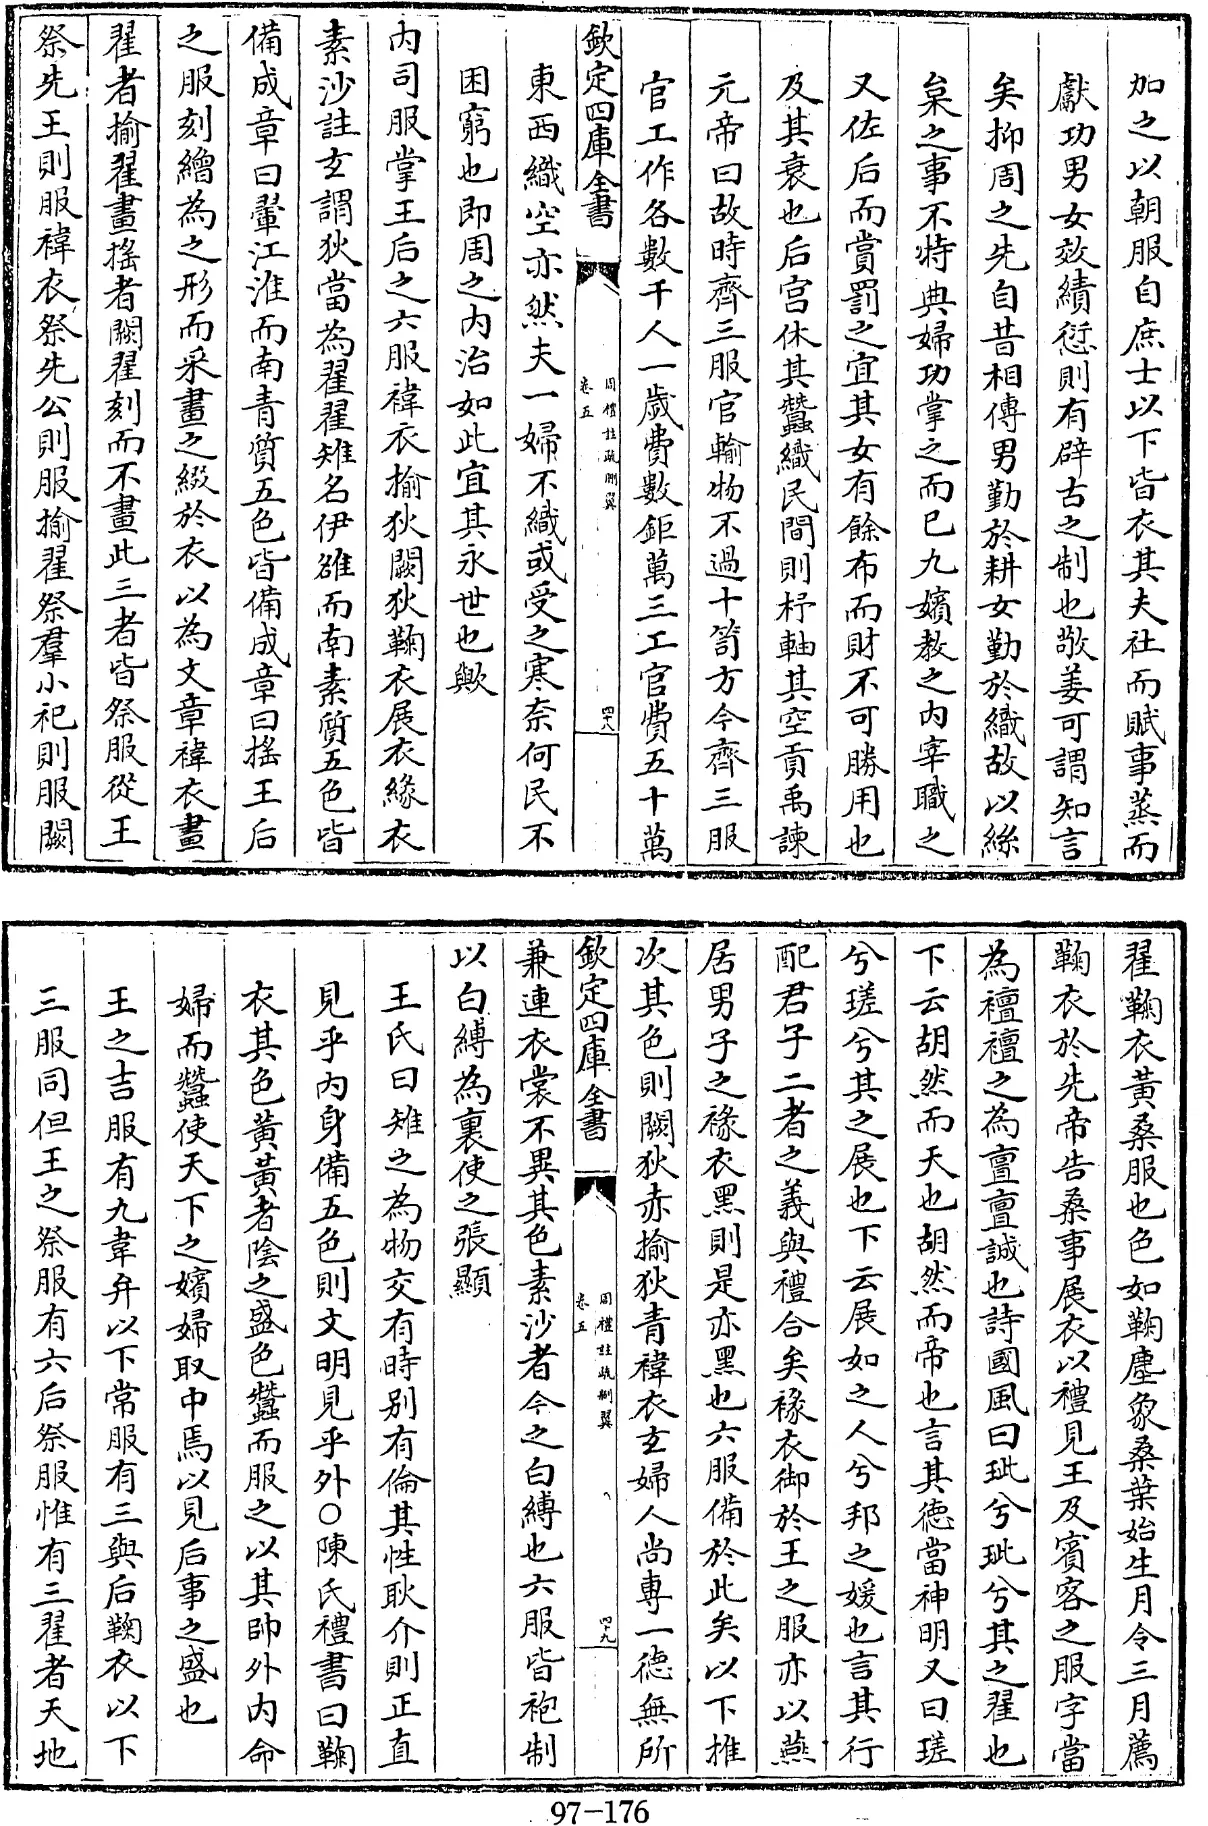 加之以朝服自庶士以下皆衣其夫社而賦事蒸而
獻功男女效績愆則有辟古之制也敬姜可謂知言
矣抑周之先自昔相傳男勤於耕女勤於織故以絲
枲之事不特典婦功掌之而已九嬪教之内宰職之
又佐后而賞罰之宜其女有餘布而財不可勝用也
及其衰也后宫休其蠶織民間則杼軸其空貢禹諫
元帝曰故時齊三服官輸物不過十笥方今齊三服
官工作各數千人一歲費數鉅萬三工官費五十萬
欽定四庫全書
周禮註疏刪翼
卷五
四十八
東西織室亦然夫一婦不織或受之寒奈何民不
困窮也即周之内治如此宜其永世也歟
内司服掌王后之六服褘衣揄狄闕狄鞠衣展衣緣衣
素沙註玄謂狄當為翟翟雉名伊雒而南素質五色皆
備成章曰翬江淮而南青質五色皆備成章曰搖王后
之服刻繒為之形而采畫之綴於衣以為文章褘衣畫
翟者揄翟畫搖者闕翟刻而不畫此三者皆祭服從王
祭先王則服褘衣祭先公則服揄翟祭羣小祀則服闕
翟鞠衣黃桑服也色如鞠塵象桑葉始生月令三月薦
鞠衣於先帝告桑事展衣以禮見王及賓客之服字當
為襢襢之為言亶亶誠也詩國風曰玼兮玼兮其之翟也
下云胡然而天也胡然而帝也言其德當神明又曰瑳
兮瑳兮其之展也下云展如之人兮邦之媛也言其行
配君子二者之義與禮合矣褖衣御於王之服亦以燕
居男子之褖衣黑則是亦黑也六服備於此矣以下推
次其色則闕狄赤揄狄青褘衣玄婦人尚專一德無所
欽定四庫全書
周禮註疏刪翼
卷五
四十九
兼連衣裳不異其色素沙者今之白縳也六服皆袍制
以白縳為裏使之張顯
王氏曰雉之為物交有時别有倫其性耿介則正直
見乎内身備五色則文明見乎外○陳氏禮書曰鞠
衣其色黃黃者陰之盛色蠶而服之以其帥外内命
婦而蠶使天下之嬪婦取中焉以見后事之盛也
王之吉服有九韋弁以下常服有三與后鞠衣以下
三服同但王之祭服有六后祭服惟有三翟者天地
97-176